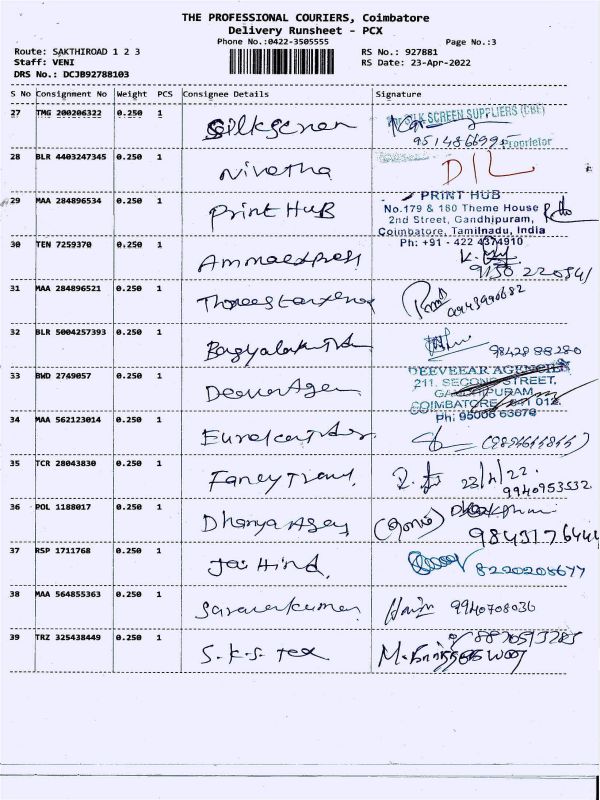 THE PROFESSIONAL COURIERS, Coimbatore
Delivery Runsheet - PCX
Phone No.:0422-3505555
Page No.:3
Route: SAKTHIROAD 1 2 3
RS No.: 927881
Staff: VENI
RS Date: 23-Apr-2022
DRS No.: DCJB92788103
S No Consignment No Weight PCS Consignee Details Signature
27 TMG 200206322 0.250 1 Silkscreen SILK SCREEN SUPPLIERS (CBE)
Proprietor
28 BLR 4403247345 0.250 1 Nivetha DIL
29 MAA 284896534 0.250 1 Print HUB PRINT HUB
No.179 & 180 Theme House
2nd Street, Gandhipuram,
Coimbatore, Tamilnadu, India
Ph: +91 - 422 4374910
30 TEN 7259370 0.250 1 Ammaexpress
31 MAA 284896521 0.250 1
32 BLR 5004257393 0.250 1 98428 88280
33 BWD 2749057 0.250 1 DEEVEEAR AGENCIES
211, SECOND STREET,
GANDHIPURAM,
COIMBATORE - 641 012.
Ph: 95006 63678
34 MAA 562123014 0.250 1
35 TCR 28043830 0.250 1 Fancy Travel 23/4/22.
9940953532
36 POL 1188017 0.250 1 Dhanya Agey
37 RSP 1711768 0.250 1 Jai Hind. 8220208677
38 MAA 564855363 0.250 1 Saravankumar 9940708036
39 TRZ 325438449 0.250 1 S.K.S. Tex